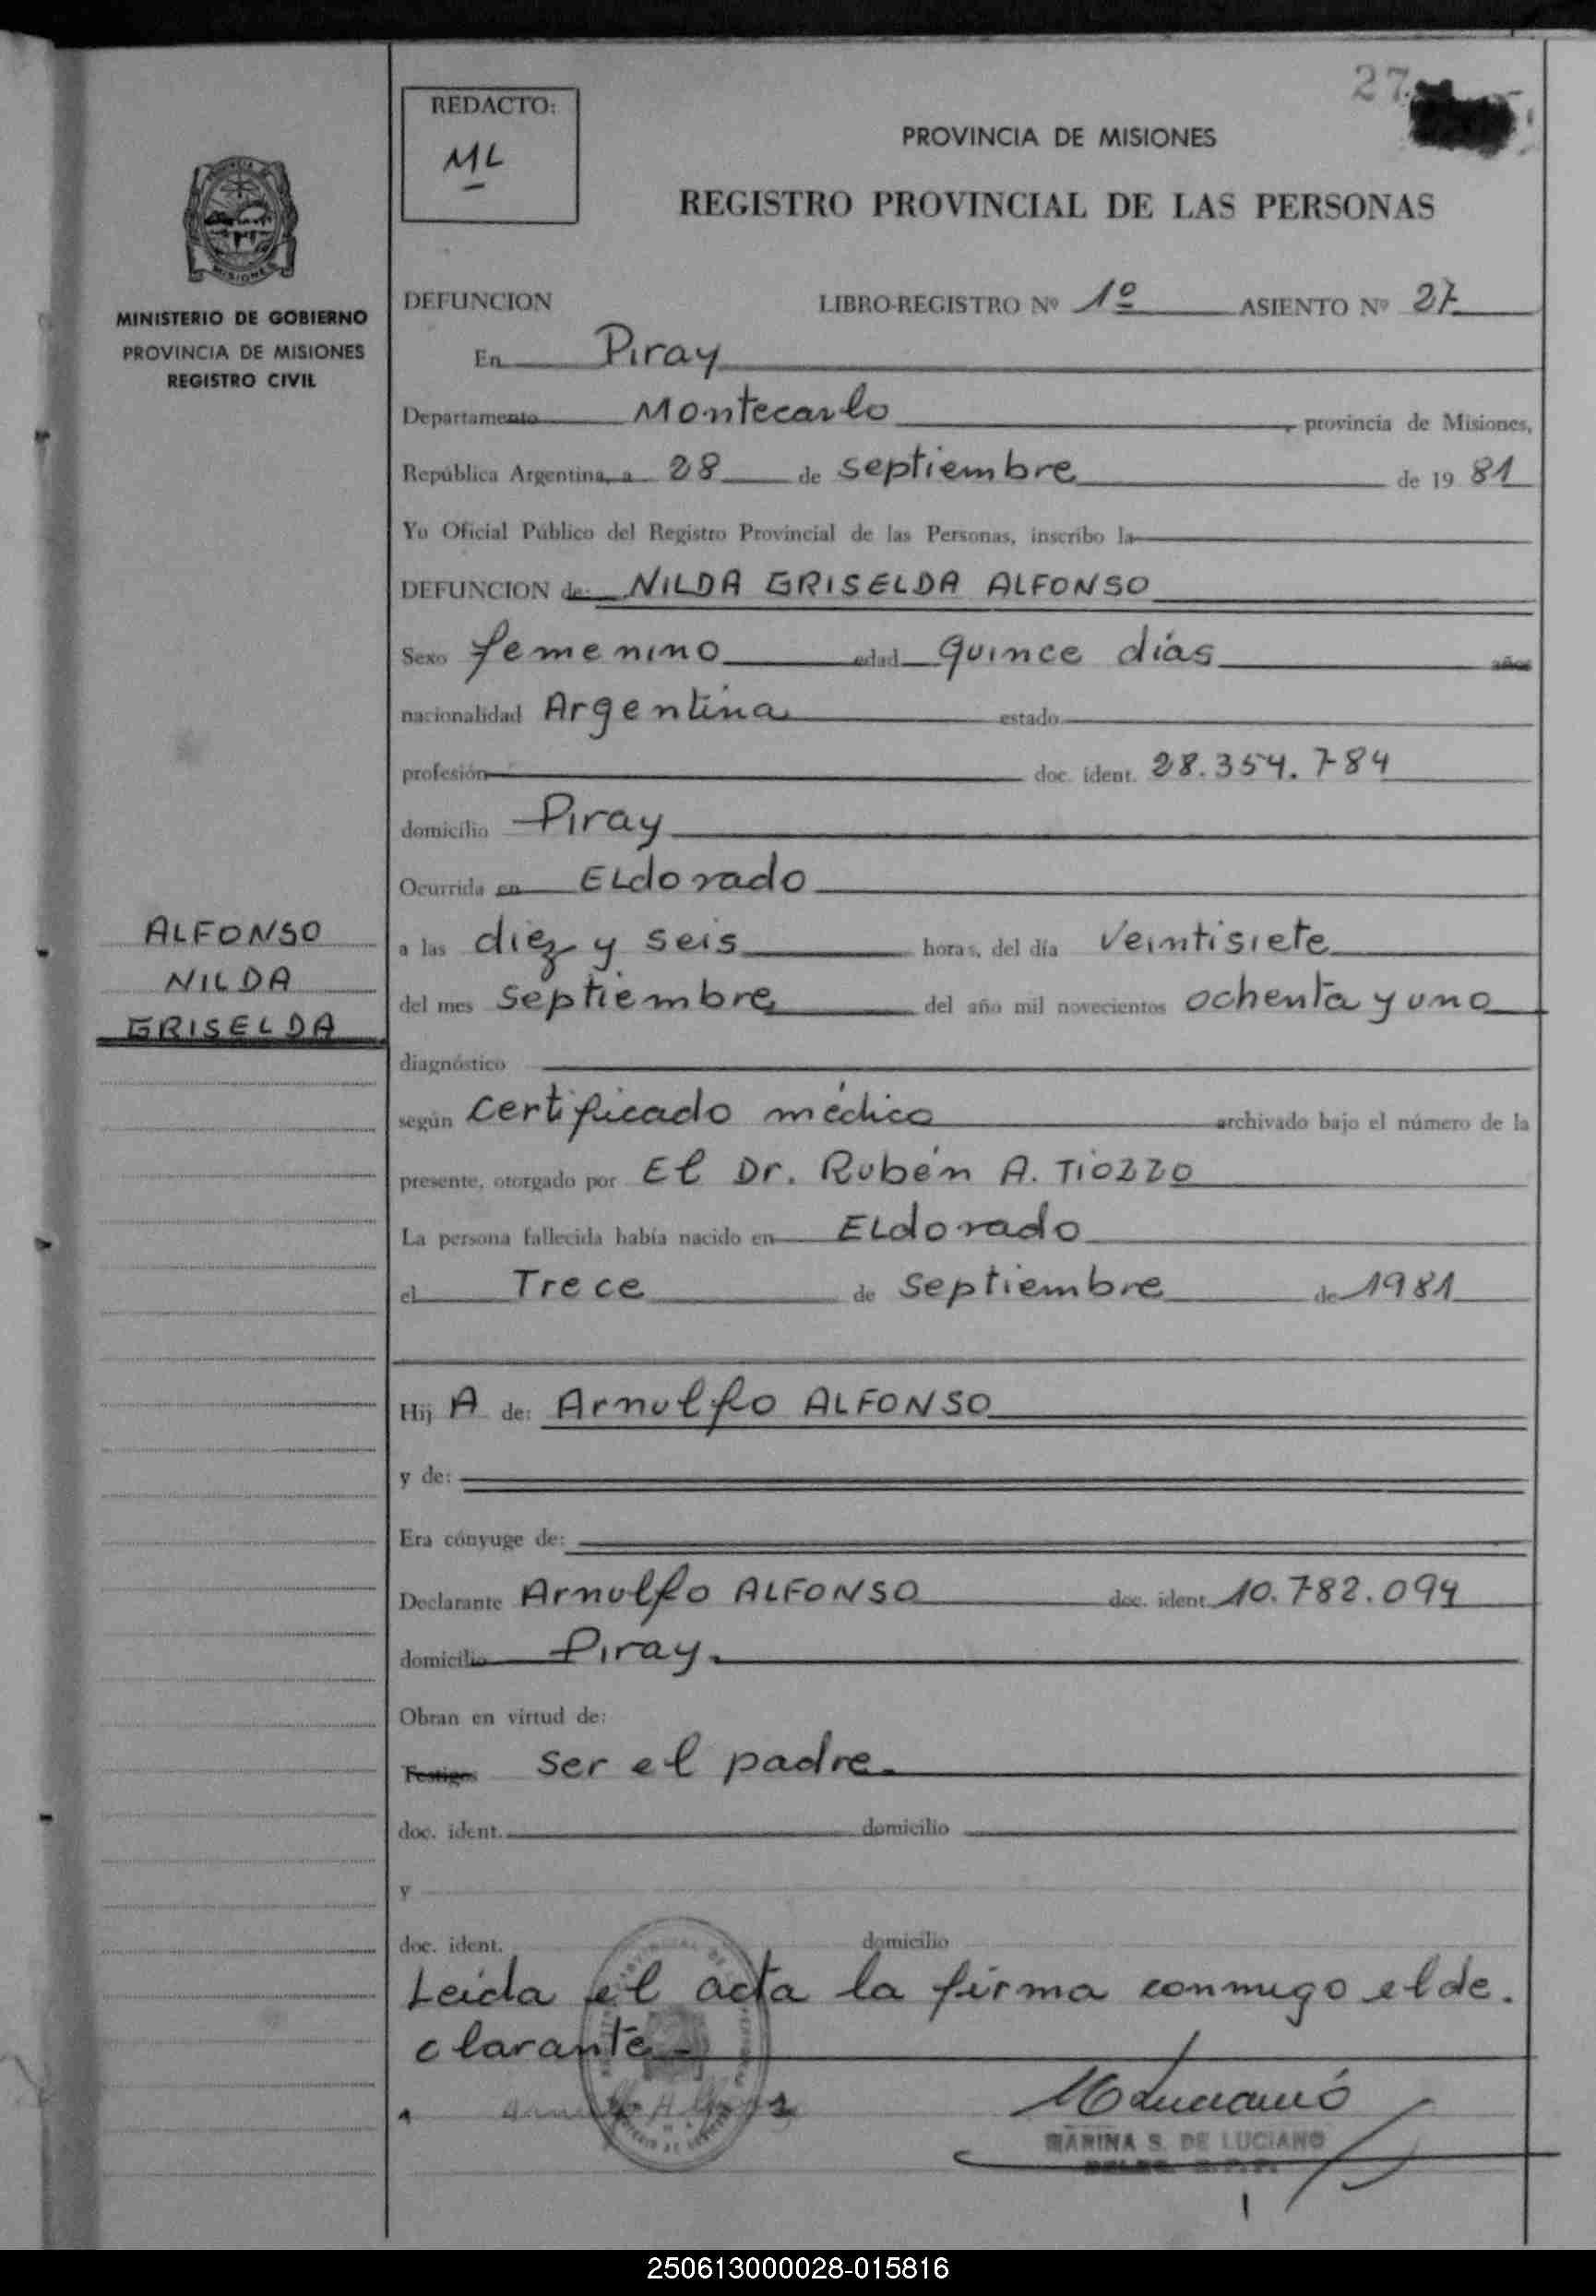 27
REDACTO:
ML
PROVINCIA DE MISIONES
REGISTRO PROVINCIAL DE LAS PERSONAS
MISIONES
MINISTERIO DE GOBIERNO
PROVINCIA DE MISIONES
REGISTRO CIVIL
DEFUNCION LIBRO-REGISTRO Nº 1º ASIENTO Nº 27
En Piray
Departamento Montecarlo, provincia de Misiones,
República Argentina, a 28 de septiembre de 19 81
Yo Oficial Público del Registro Provincial de las Personas, inscribo la
DEFUNCION de: NILDA GRISELDA ALFONSO
Sexo femenino edad quince días años
nacionalidad Argentina estado
profesión doc. ident. 28.354.784
domicilio Piray
Ocurrida en ELdorado
a las diez y seis horas, del día veintisiete
del mes septiembre del año mil novecientos ochenta y uno
diagnóstico
según certificado médico archivado bajo el número de la
presente, otorgado por El Dr. Rubén A. Tiozzo
La persona fallecida había nacido en ELdorado
el Trece de septiembre de 1981
ALFONSO
NILDA
GRISELDA
Hij A de: Arnulfo ALFONSO
y de:
Era cónyuge de:
Declarante Arnulfo ALFONSO doc. ident. 10.782.094
domicilio Piray.
Obran en virtud de:
Testigos ser el padre.
doc. ident. domicilio
y
doc. ident. domicilio
Leida el acta la firma conmigo el de.
clarante
MARINA S. DE LUCIANO
250613000028-015816